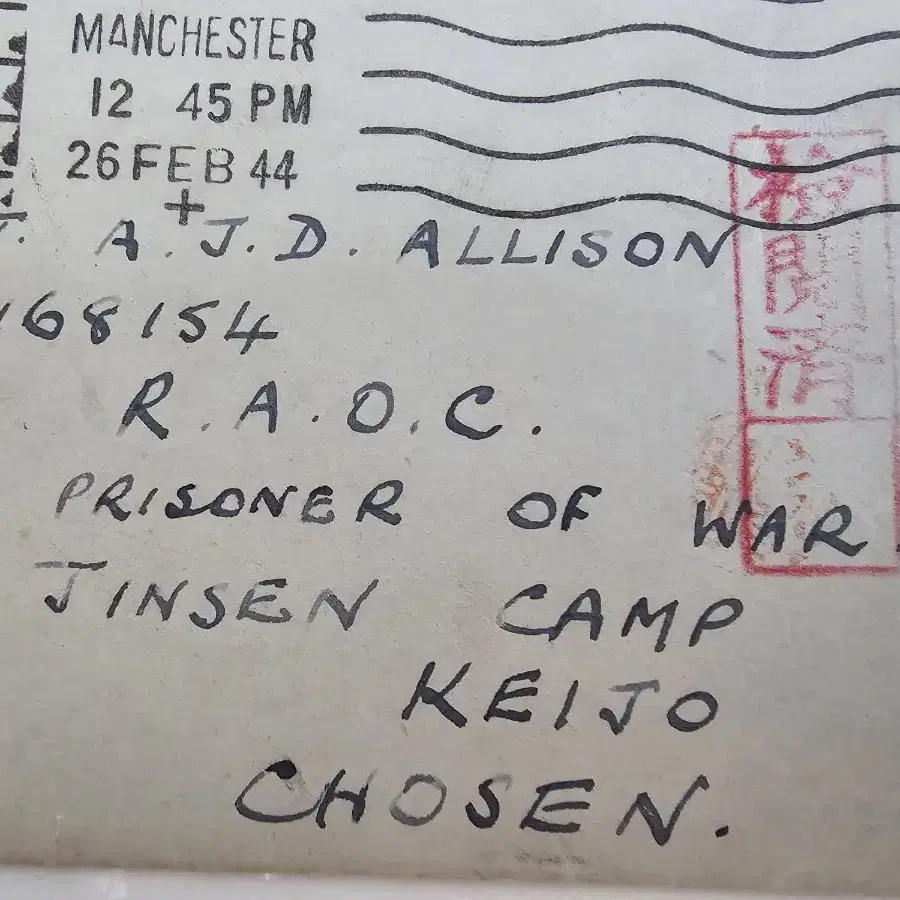 MANCHESTER
12 45 PM
26 FEB 44
+
A.J.D. ALLISON
168154
R.A.O.C.
PRISONER OF WAR.
JINSEN CAMP
KEIJO
CHOSEN.
検閲済